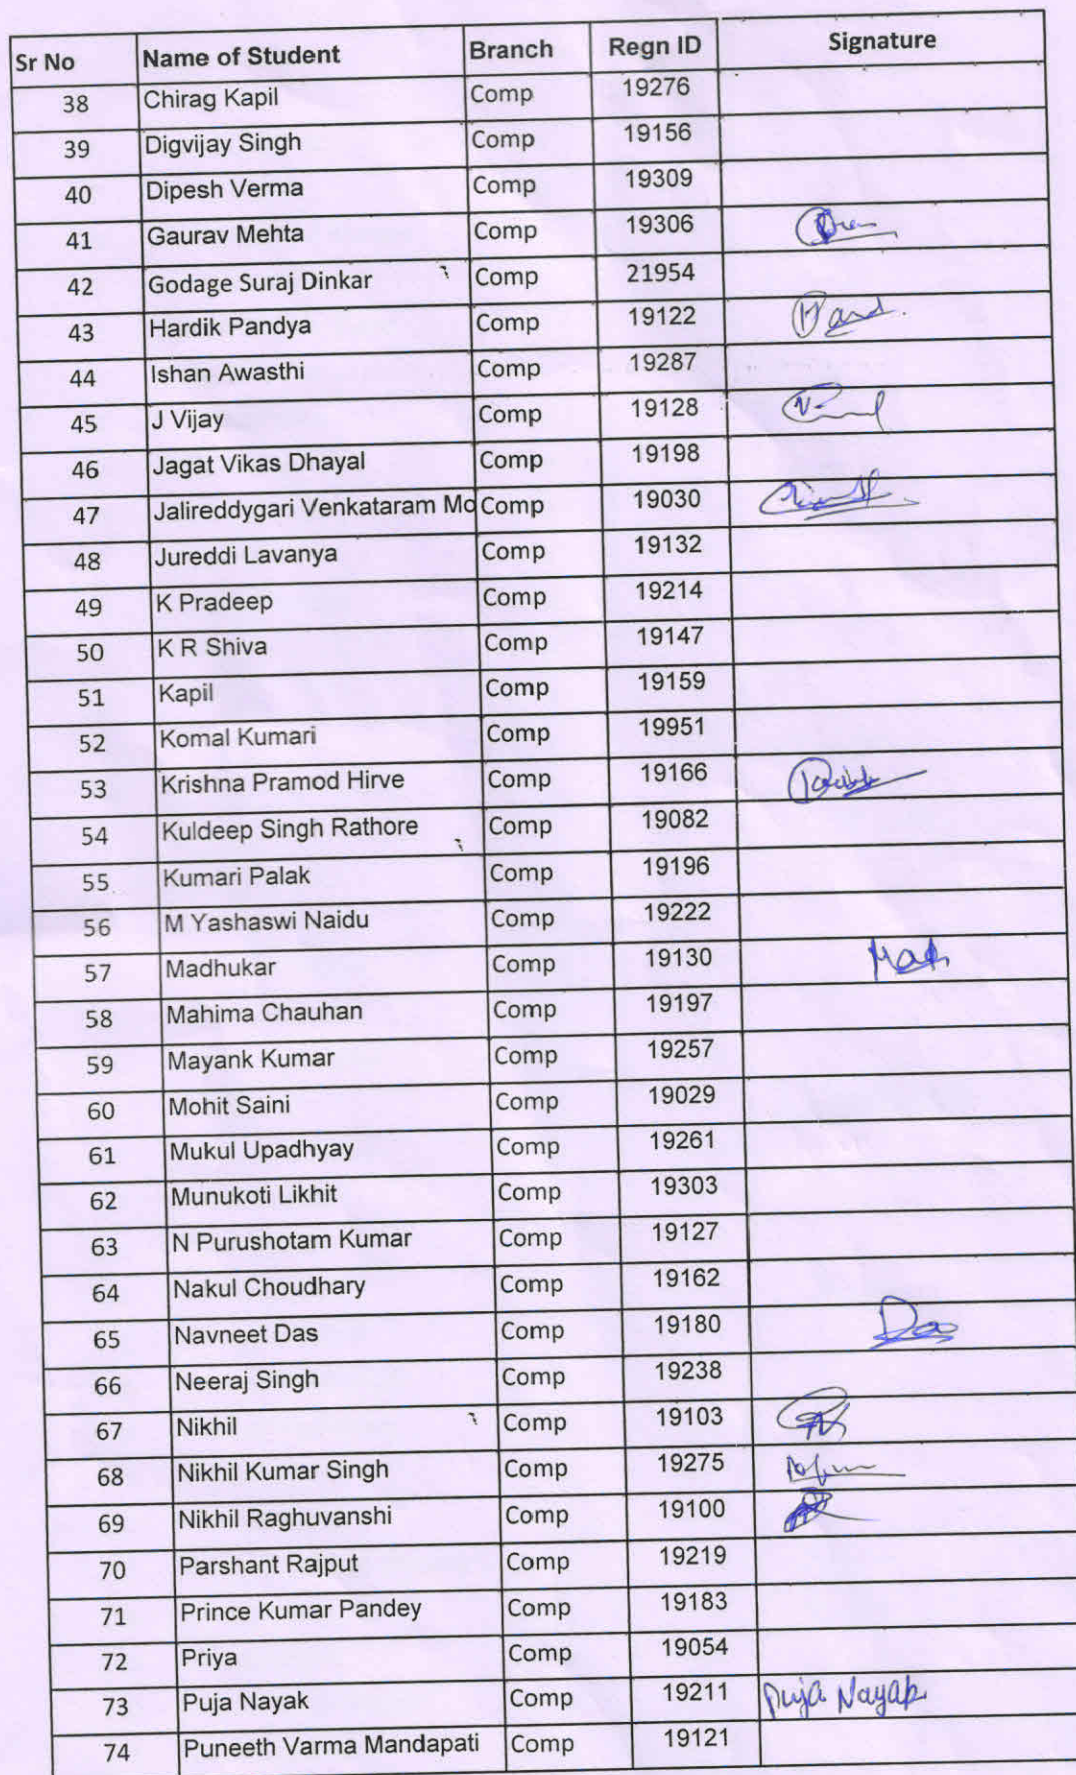 Sr No Name of Student Branch Regn ID Signature
38 Chirag Kapil Comp 19276
39 Digvijay Singh Comp 19156
40 Dipesh Verma Comp 19309
41 Gaurav Mehta Comp 19306
42 Godage Suraj Dinkar Comp 21954
43 Hardik Pandya Comp 19122
44 Ishan Awasthi Comp 19287
45 J Vijay Comp 19128
46 Jagat Vikas Dhayal Comp 19198
47 Jalireddygari Venkataram Mo Comp 19030
48 Jureddi Lavanya Comp 19132
49 K Pradeep Comp 19214
50 K R Shiva Comp 19147
51 Kapil Comp 19159
52 Komal Kumari Comp 19951
53 Krishna Pramod Hirve Comp 19166
54 Kuldeep Singh Rathore Comp 19082
55 Kumari Palak Comp 19196
56 M Yashaswi Naidu Comp 19222
57 Madhukar Comp 19130
58 Mahima Chauhan Comp 19197
59 Mayank Kumar Comp 19257
60 Mohit Saini Comp 19029
61 Mukul Upadhyay Comp 19261
62 Munukoti Likhit Comp 19303
63 N Purushotam Kumar Comp 19127
64 Nakul Choudhary Comp 19162
65 Navneet Das Comp 19180 Das
66 Neeraj Singh Comp 19238
67 Nikhil Comp 19103
68 Nikhil Kumar Singh Comp 19275
69 Nikhil Raghuvanshi Comp 19100
70 Parshant Rajput Comp 19219
71 Prince Kumar Pandey Comp 19183
72 Priya Comp 19054
73 Puja Nayak Comp 19211 Puja Nayak
74 Puneeth Varma Mandapati Comp 19121